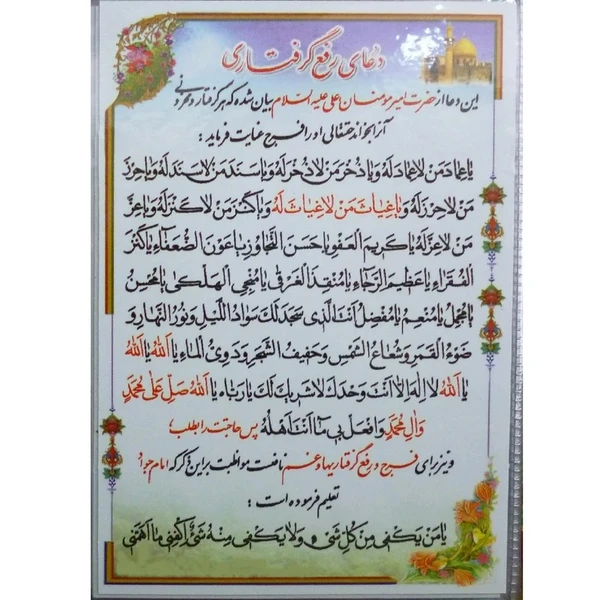 دعای رفع گرفتاری
این دعا از حضرت امیر مومنان علی علیه السلام بیان شده که هر گرفتار و محزونی
آنرا بخواند حقتعالی او را فرج عنایت فرماید :
یا عِمادَ مَن لا عِمادَ لَهُ وَ یا ذُخْرَ مَن لا ذُخْرَ لَهُ وَ یا سَنَدَ مَن لا سَنَدَ لَهُ وَ یا حِرْزَ
مَن لا حِرْزَ لَهُ وَ یا غِیاثَ مَن لا غِیاثَ لَهُ وَ یا کَنْزَ مَن لا کَنْزَ لَهُ وَ یا عِزَّ
مَن لا عِزَّ لَهُ یا کَریمَ الْعَفْوِ یا حَسَنَ التَّجاوُزِ یا عَوْنَ الضُّعَفآءِ یا کَنْزَ
الْفُقَرآءِ یا عَظیمَ الرَّجآءِ یا مُنْقِذَ الْغَرْقی یا مُنْجِیَ الْهَلْکی یا مُحْسِنُ
یا مُجْمِلُ یا مُنْعِمُ یا مُفْضِلُ اَنْتَ الَّذی سَجَدَ لَکَ سَوادُ اللَّیْلِ وَ نُورُ النَّهارِ وَ
ضَوْءُ الْقَمَرِ وَ شُعاعُ الشَّمْسِ وَ حَفیفُ الشَّجَرِ وَ دَوِیُّ الْمآءِ یا اَللهُ یا اَللهُ
یا اَللهُ لا اِلهَ اِلاّ اَنْتَ وَحْدَکَ لا شَریکَ لَکَ یا رَبّاهُ یا اَللهُ صَلِّ عَلی مُحَمَّدٍ
وَ الِ مُحَمَّدٍ وَ افْعَلْ بی ما اَنْتَ اَهْلُهُ پس حاجت را بطلب
و نیز برای فرج و رفع گرفتاریها و غم نافعت مواظبت بر این ذکر که امام جواد
تعلیم فرموده است :
یا مَنْ یَکْفی مِنْ کُلِّ شَیْءٍ وَ لا یَکْفی مِنْهُ شَیْءٌ اِکْفِنی ما اَهَمَّنی